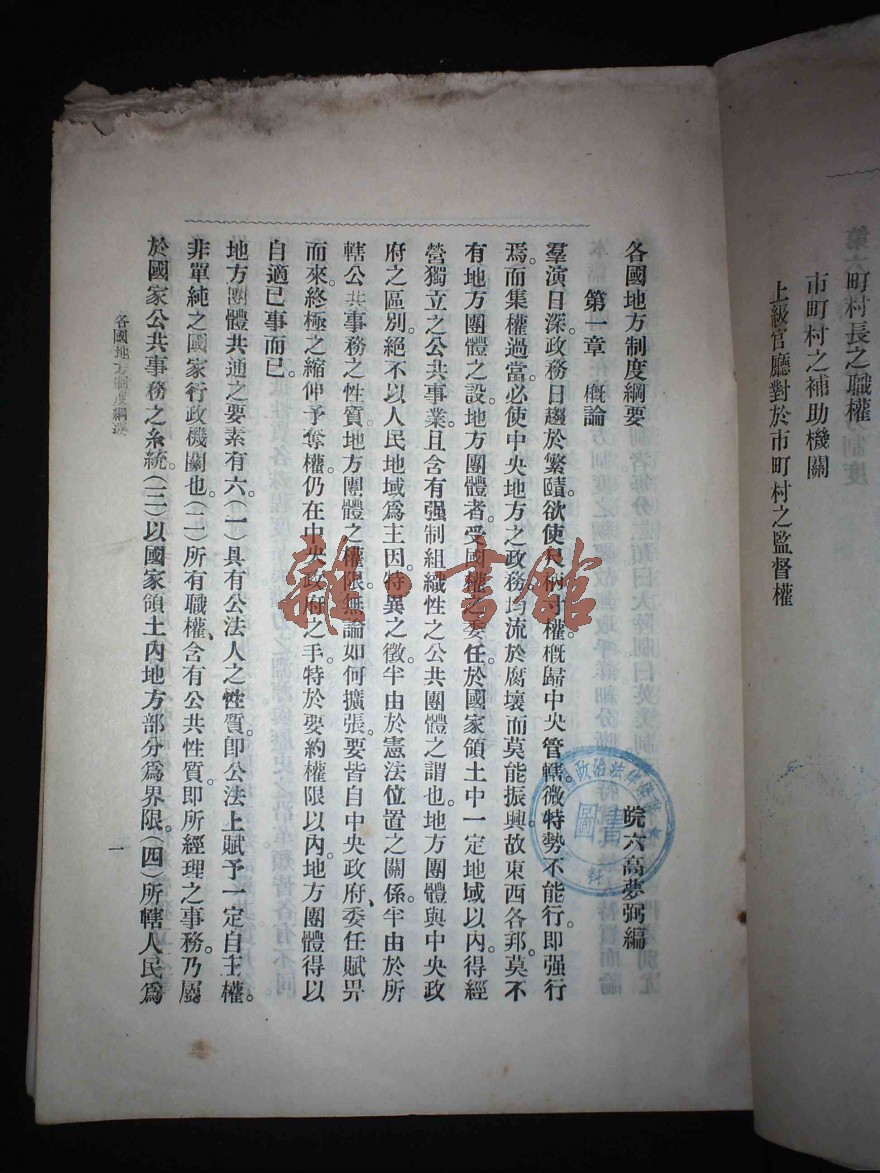 町村長之職權
市町村之補助機關
上級官廳對於市町村之監督權
各國地方制度綱要
皖六高夢弼編
第一章　概論
羣演日深。政務日趨於繁賾。欲使尺柄寸權。概歸中央管轄。微特勢不能行。即强行
焉。而集權過當。必使中央地方之政務。均流於腐壞而莫能振興。故東西各邦。莫不
有地方團體之設。地方團體者。受國權之委任。於國家領土中一定地域以內。得經
營獨立之公共事業。且含有强制組織性之公共團體之謂也。地方團體與中央政
府之區別。絕不以人民地域爲主因。特異之徵。半由於憲法位置之關係。半由於所
轄公共事務之性質。地方團體之權限。無論如何擴張。要皆自中央政府、委任賦畀
而來。終極之縮伸予奪權。仍在中央政府之手。特於要約權限以內。地方團體得以
自適已事而已。
地方團體共通之要素有六。(一)具有公法人之性質。卽公法上賦予一定自主權。
非單純之國家行政機關也。(二)所有職權、含有公共性質。即所經理之事務。乃屬
於國家公共事務之系統。(三)以國家領土內地方部分爲界限。(四)所轄人民爲
各國地方制度綱要
一
雜·書館